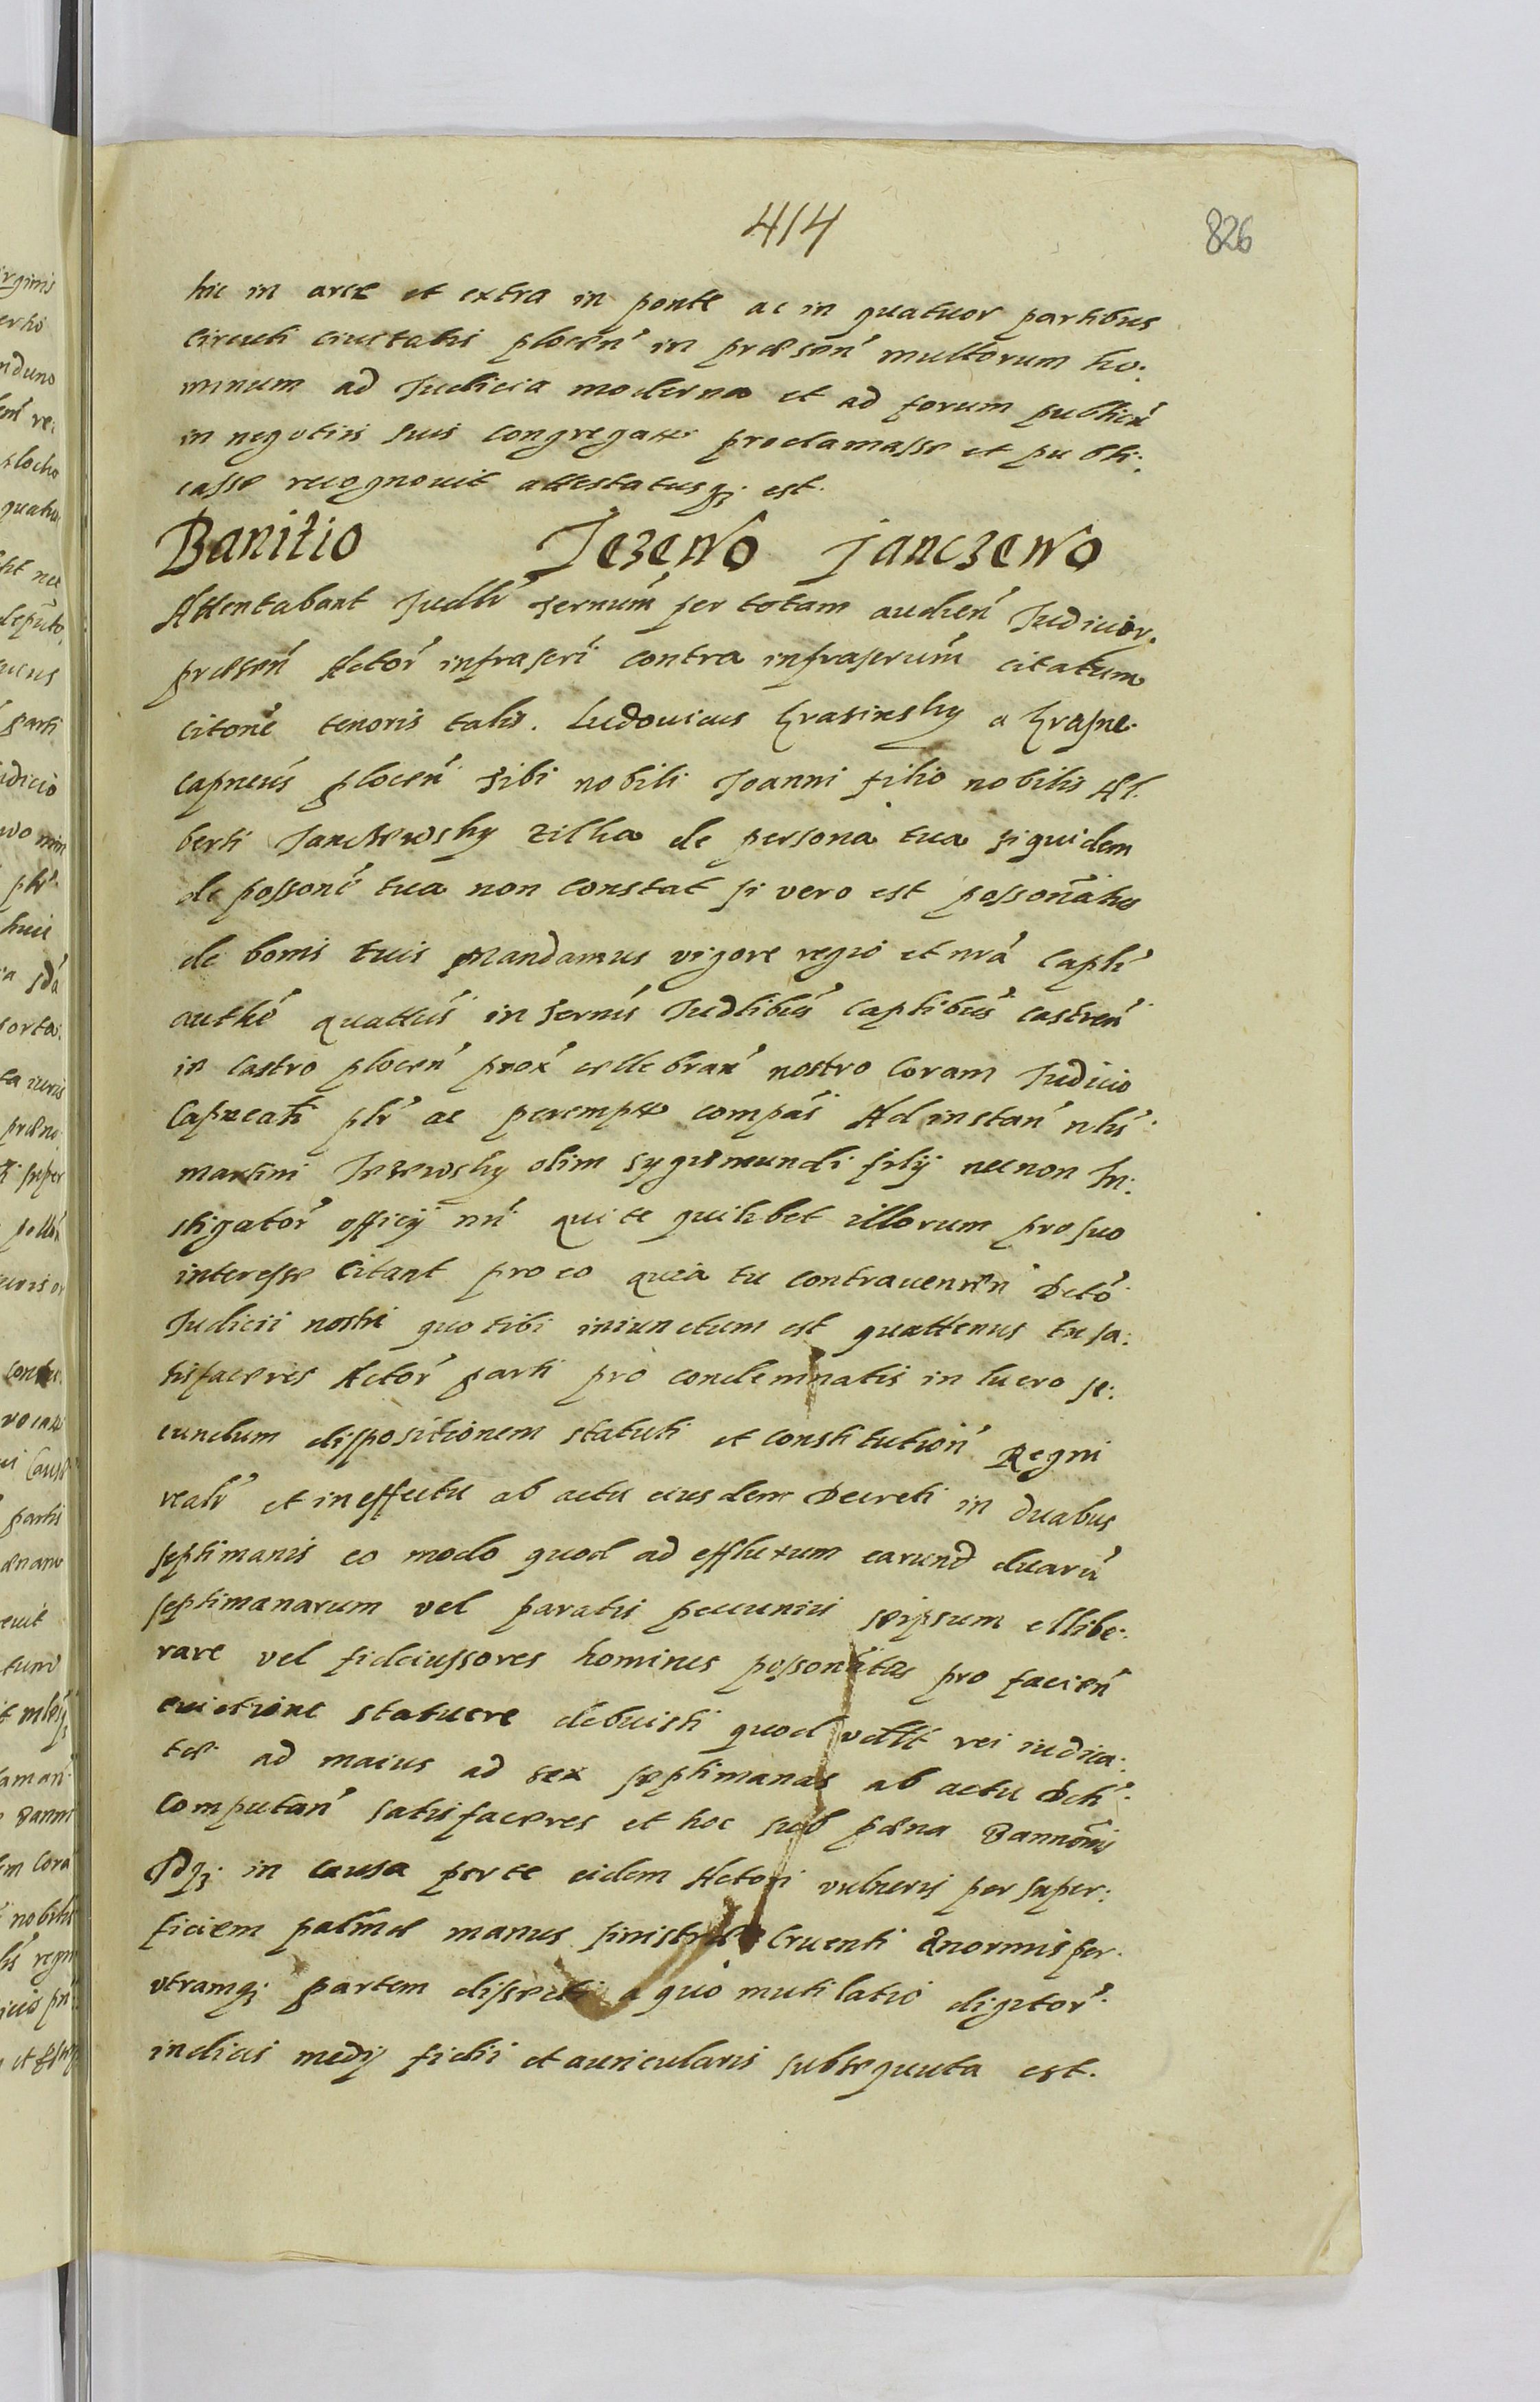 414
826
hic in arce et extra in ponte ac in quatuor partibus
circuli ciuitatis plocen̄ in præsen̄ multorum ho:
minum ad Judicia moderna et ad forum publicū
in negotiis suis congregat proclamasse et publi:
casse recognouit attestatusq; est.
Banitio Jezewo Janczewo
Attentabant Judlr̄ termm̄ per totam audien̄ Judicior.
præsen̄ Actor̄ infrascri contra infrascrum̄ citatum
citone tenoris talis. Ludouicus Krasinsky a Krasne
Capneus plocen̄ Tibi nobili Joanni filio nobilis Al:
berti Janczewsky Zilka de persona tua siquidem
de possone tua non constat si vero est possonatus
de bonis tuis Mandamus vigore regio et nrā Capli
authē quattus in termis Judlibus Captlibus castren̄
in Castro plocen̄ prox̄ cellebran̄ nostro Coram Judicio
Capneali plr̄ ac peremptᵉ compās Ad instan̄ nblis
martini Jezewsky olim Sygismundi filij necnon In:
stigator̄ officij nri qui te quilibet illorum pro suo
interesse Citant pro eo quia tu contraueniēn Dcto
Judicii nostri quo tibi iniunctum est quattenus tu sa:
tisfaceres Actor̄ parti pro condemnatis in lucro se:
cundum dispositionem statuti et constitution̄ Regni
realr̄ et in effectu ab actu eiusdem Decreti in duabus
septimanis eo modo quod ad effluxum earund duarū
septimanarum vel paratis peccuniis seipsum ellibe:
rare vel fideiussores homines possonatos pro facien̄
euictione statuere debuisti quod vellt rei iudica:
tæ ad maius ad sex septimanas ab actu Dcti
Computan̄ satisfaceres et hoc sub pœna Bannonis
Idq; in causa per te eidem Actori vulneris per super:
ficiem palmæ manus sinistræ Cruenti Enormis per
vtramq; partem dissecti a quo mutilatio digitor̄
indicis medij fidii et auricularis subsequuta est.